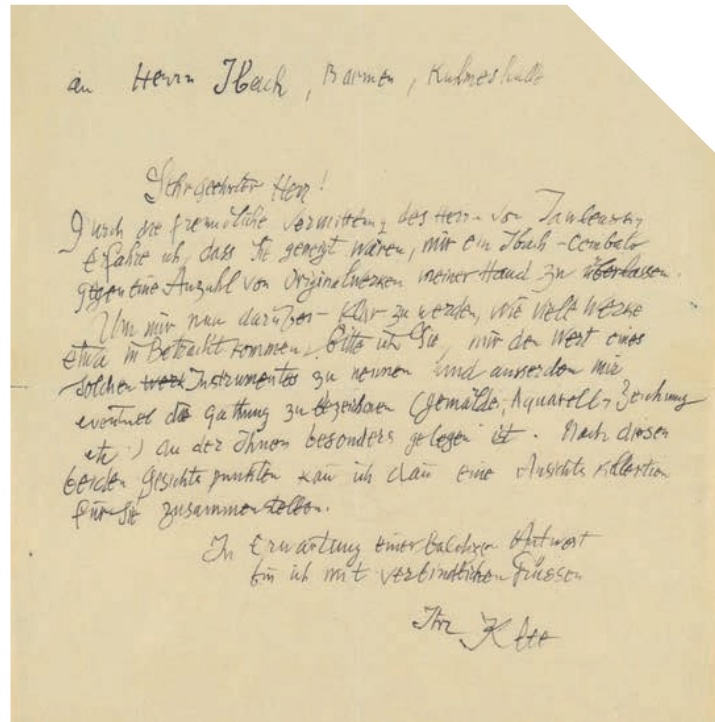 an Herrn Ibach, Barmen,
Sehr geehrter Herr!
Durch die freundliche Vermittlung des Herrn von
erfahre ich, dass Sie geneigt wären, mir ein Ibach-Cembalo
gegen eine Anzahl von Originalwerken meiner Hand zu überlassen.
Um mir nun darüber klar zu werden, wie viele Werke
etwa in Betracht kommen, bitte ich Sie, mir den Wert eines
solchen Werk Instrumentes zu nennen und ausserdem mir
eventuel die Gattung zu bezeichnen (Gemälde, Aquarell, Zeichnung
etc.) an der Ihnen besonders gelegen ist. Nach diesen
beiden Gesichtspunkten kan ich dan eine Ansichts Kollektion
für Sie zusammenstellen.
In Erwartung einer baldigen Antwort
bin ich mit verbindlichen Grüssen
Ihr Klee